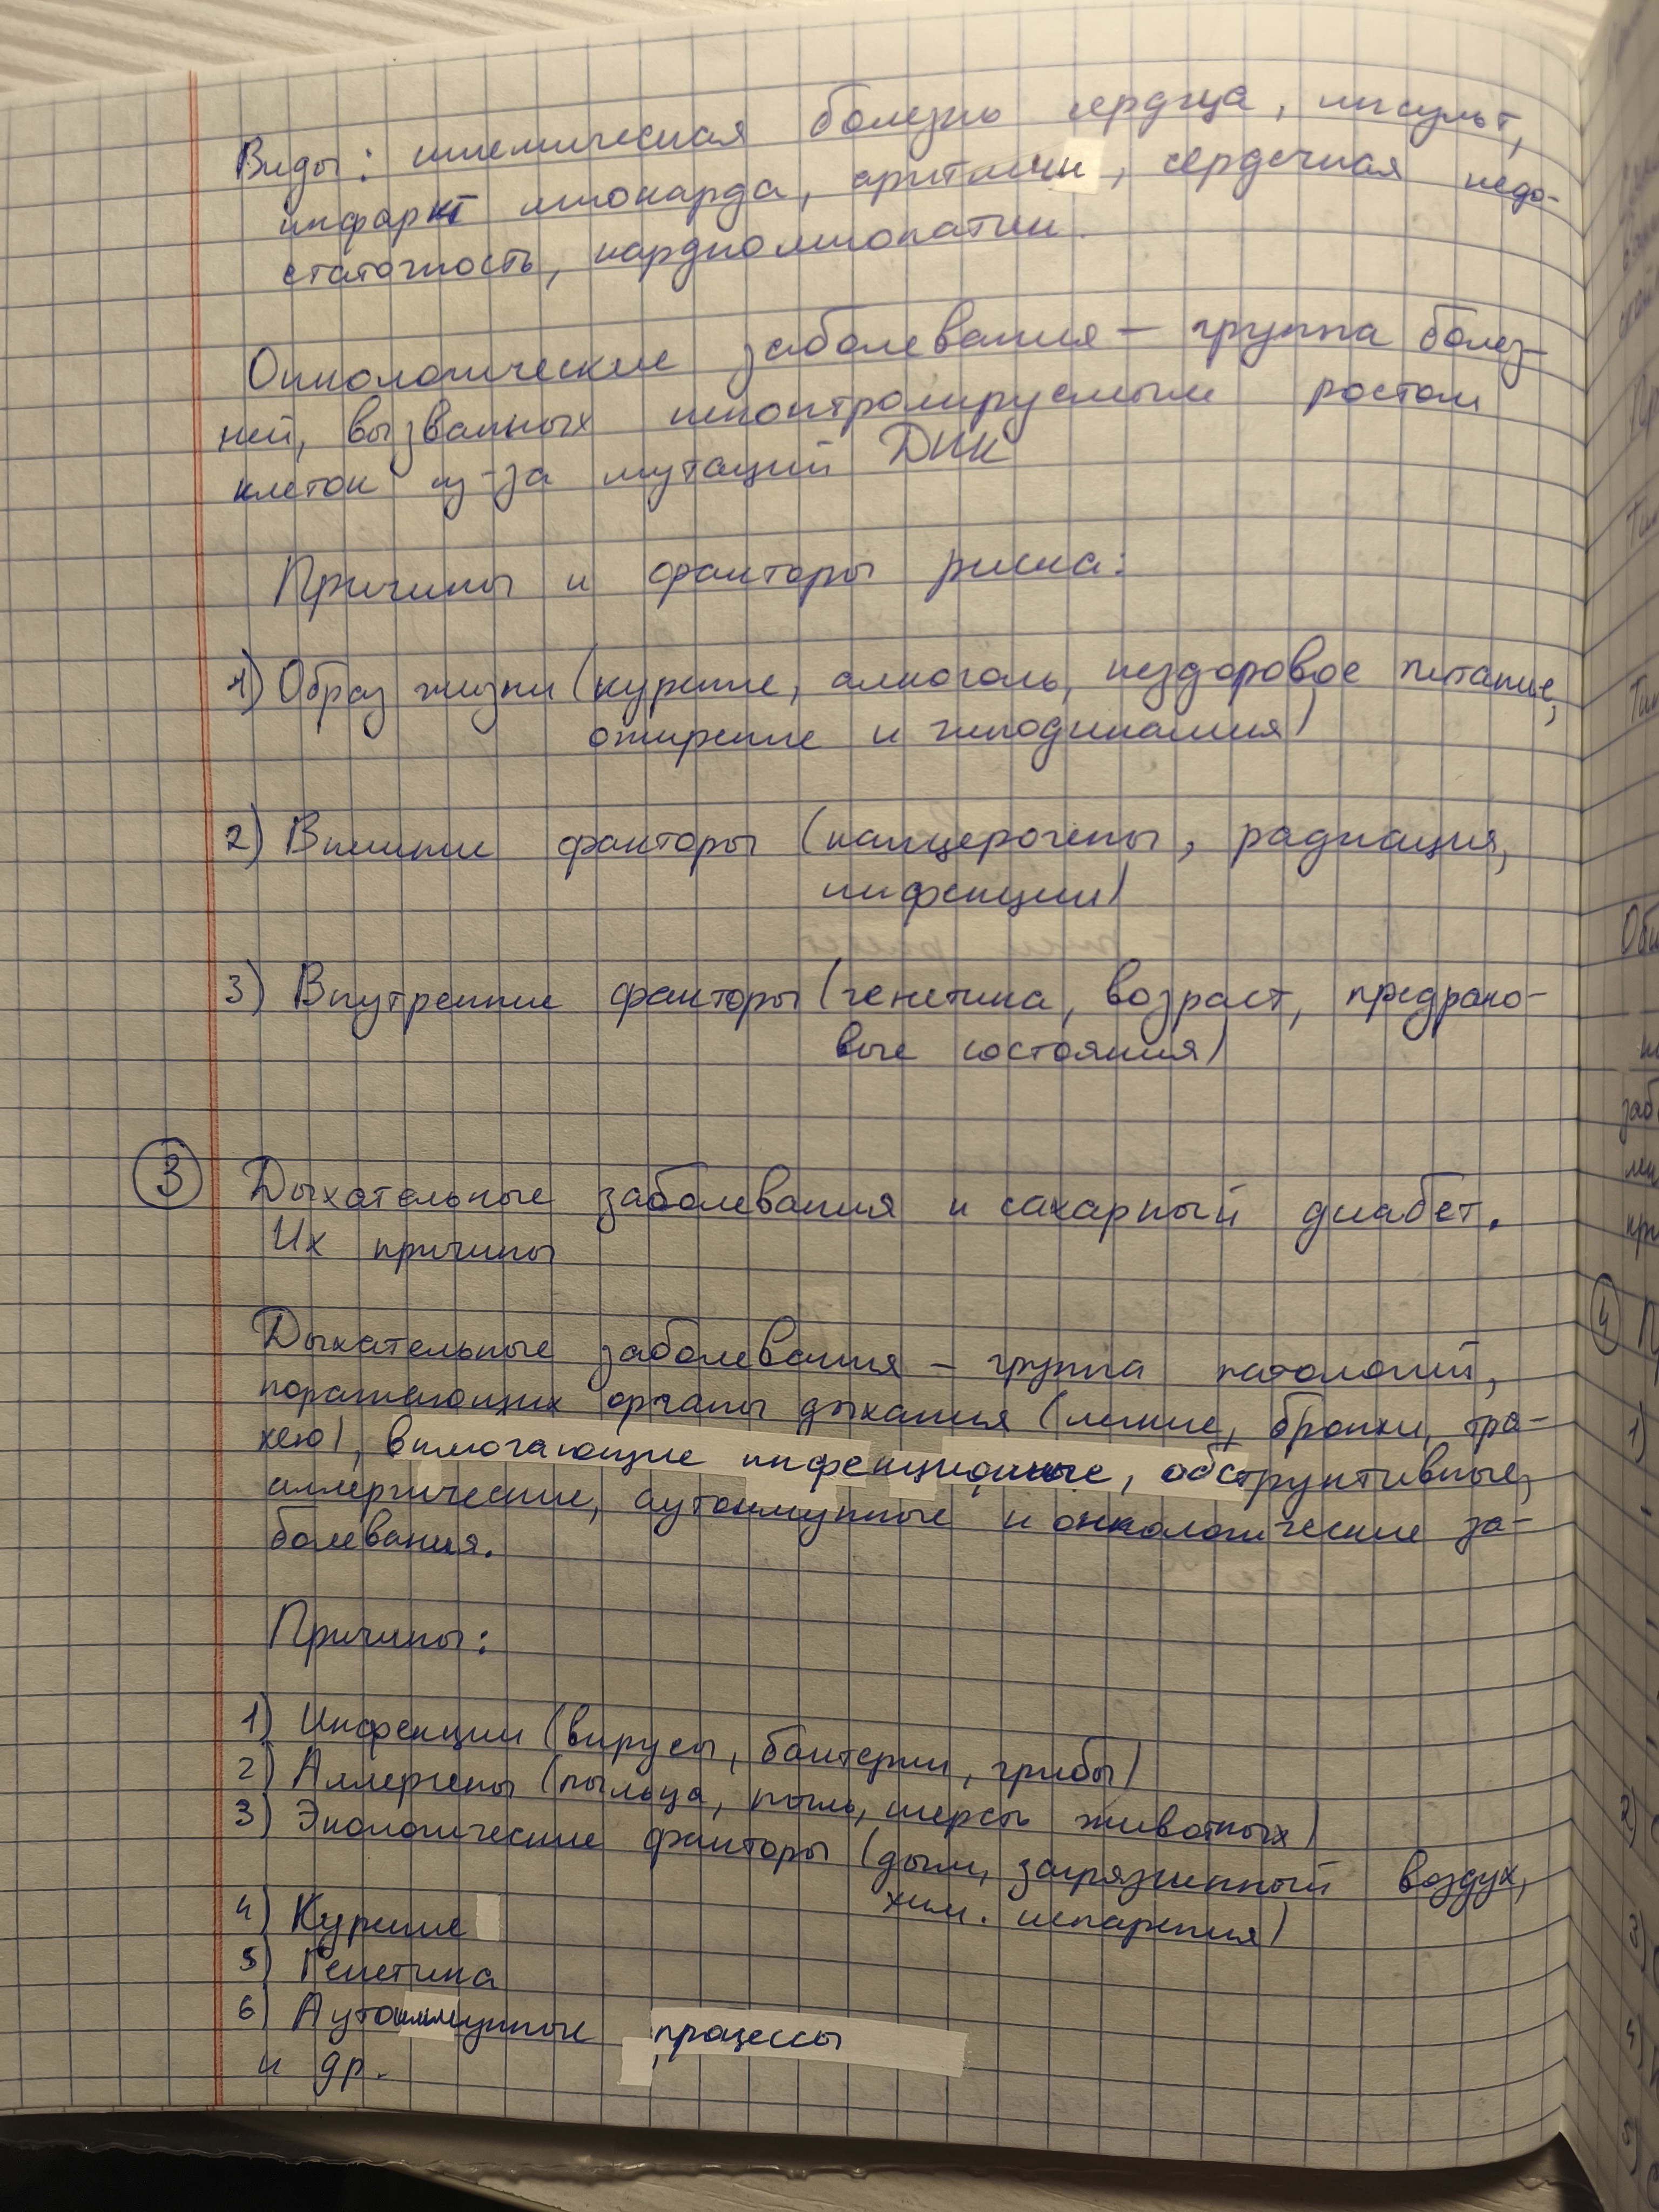 Виды: ишемическая болезнь сердца, инсульт,
инфаркт миокарда, аритмии, сердечная недо-
статочность, кардиомиопатии.
Онкологические заболевания – группа болез-
ней, вызванных неконтролируемым ростом
клеток из-за мутаций ДНК
Причины и факторы риска:
1) Образ жизни (курение, алкоголь, нездоровое питание,
ожирение и гиподинамия)
2) Внешние факторы (канцерогены, радиация,
инфекции)
3) Внутренние факторы (генетика, возраст, предрако-
вые состояния)
3 Дыхательные заболевания и сахарный диабет.
Их причины
Дыхательные заболевания – группа патологий,
поражающих органы дыхания (легкие, бронхи, тра-
хею), включающие инфекционные, обструктивные,
аллергические, аутоимунные и онкологические за-
болевания.
Причины:
1) Инфекции (вирусы, бактерии, грибы)
2) Аллергены (пыльца, пыль, шерсть животных)
3) Экологические факторы (дым, загрязненный воздух,
хим. испарения)
4) Курение
5) Генетика
6) Аутоиммунные процессы
и др.
4
1)
2)
3)
4)
5)